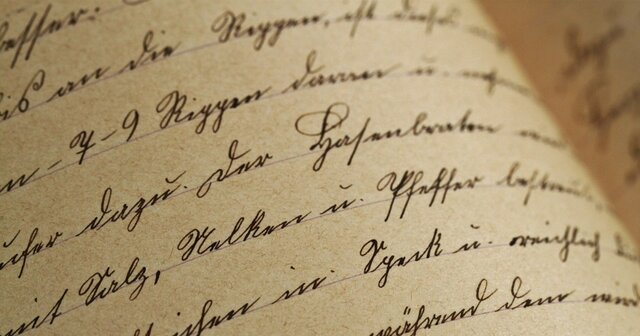 besser:
bis an die Rippen, ist dieses
n - 7 - 9 Rippen daran u.
dazu. Der Hasenbraten
mit Salz, Nelken u. Pfeffer bestreut
in Speck u. reichlich
während dem wird